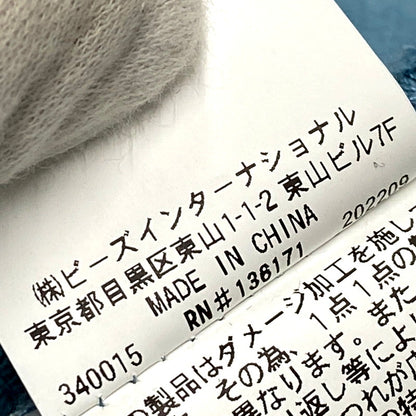 ㈱ビーズインターナショナル
東京都目黒区東山1-1-2 東山ビル7F
MADE IN CHINA
RN# 136171
340015
202209
の製品はダメージ加工を施し
その為、1点1点の
異なります。また
返し等によ